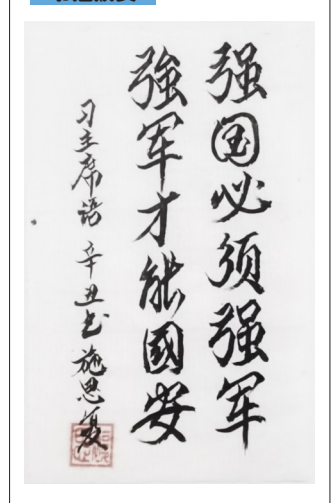 强国必须强军
強军才能國安
习主席语 辛丑书 施思夏